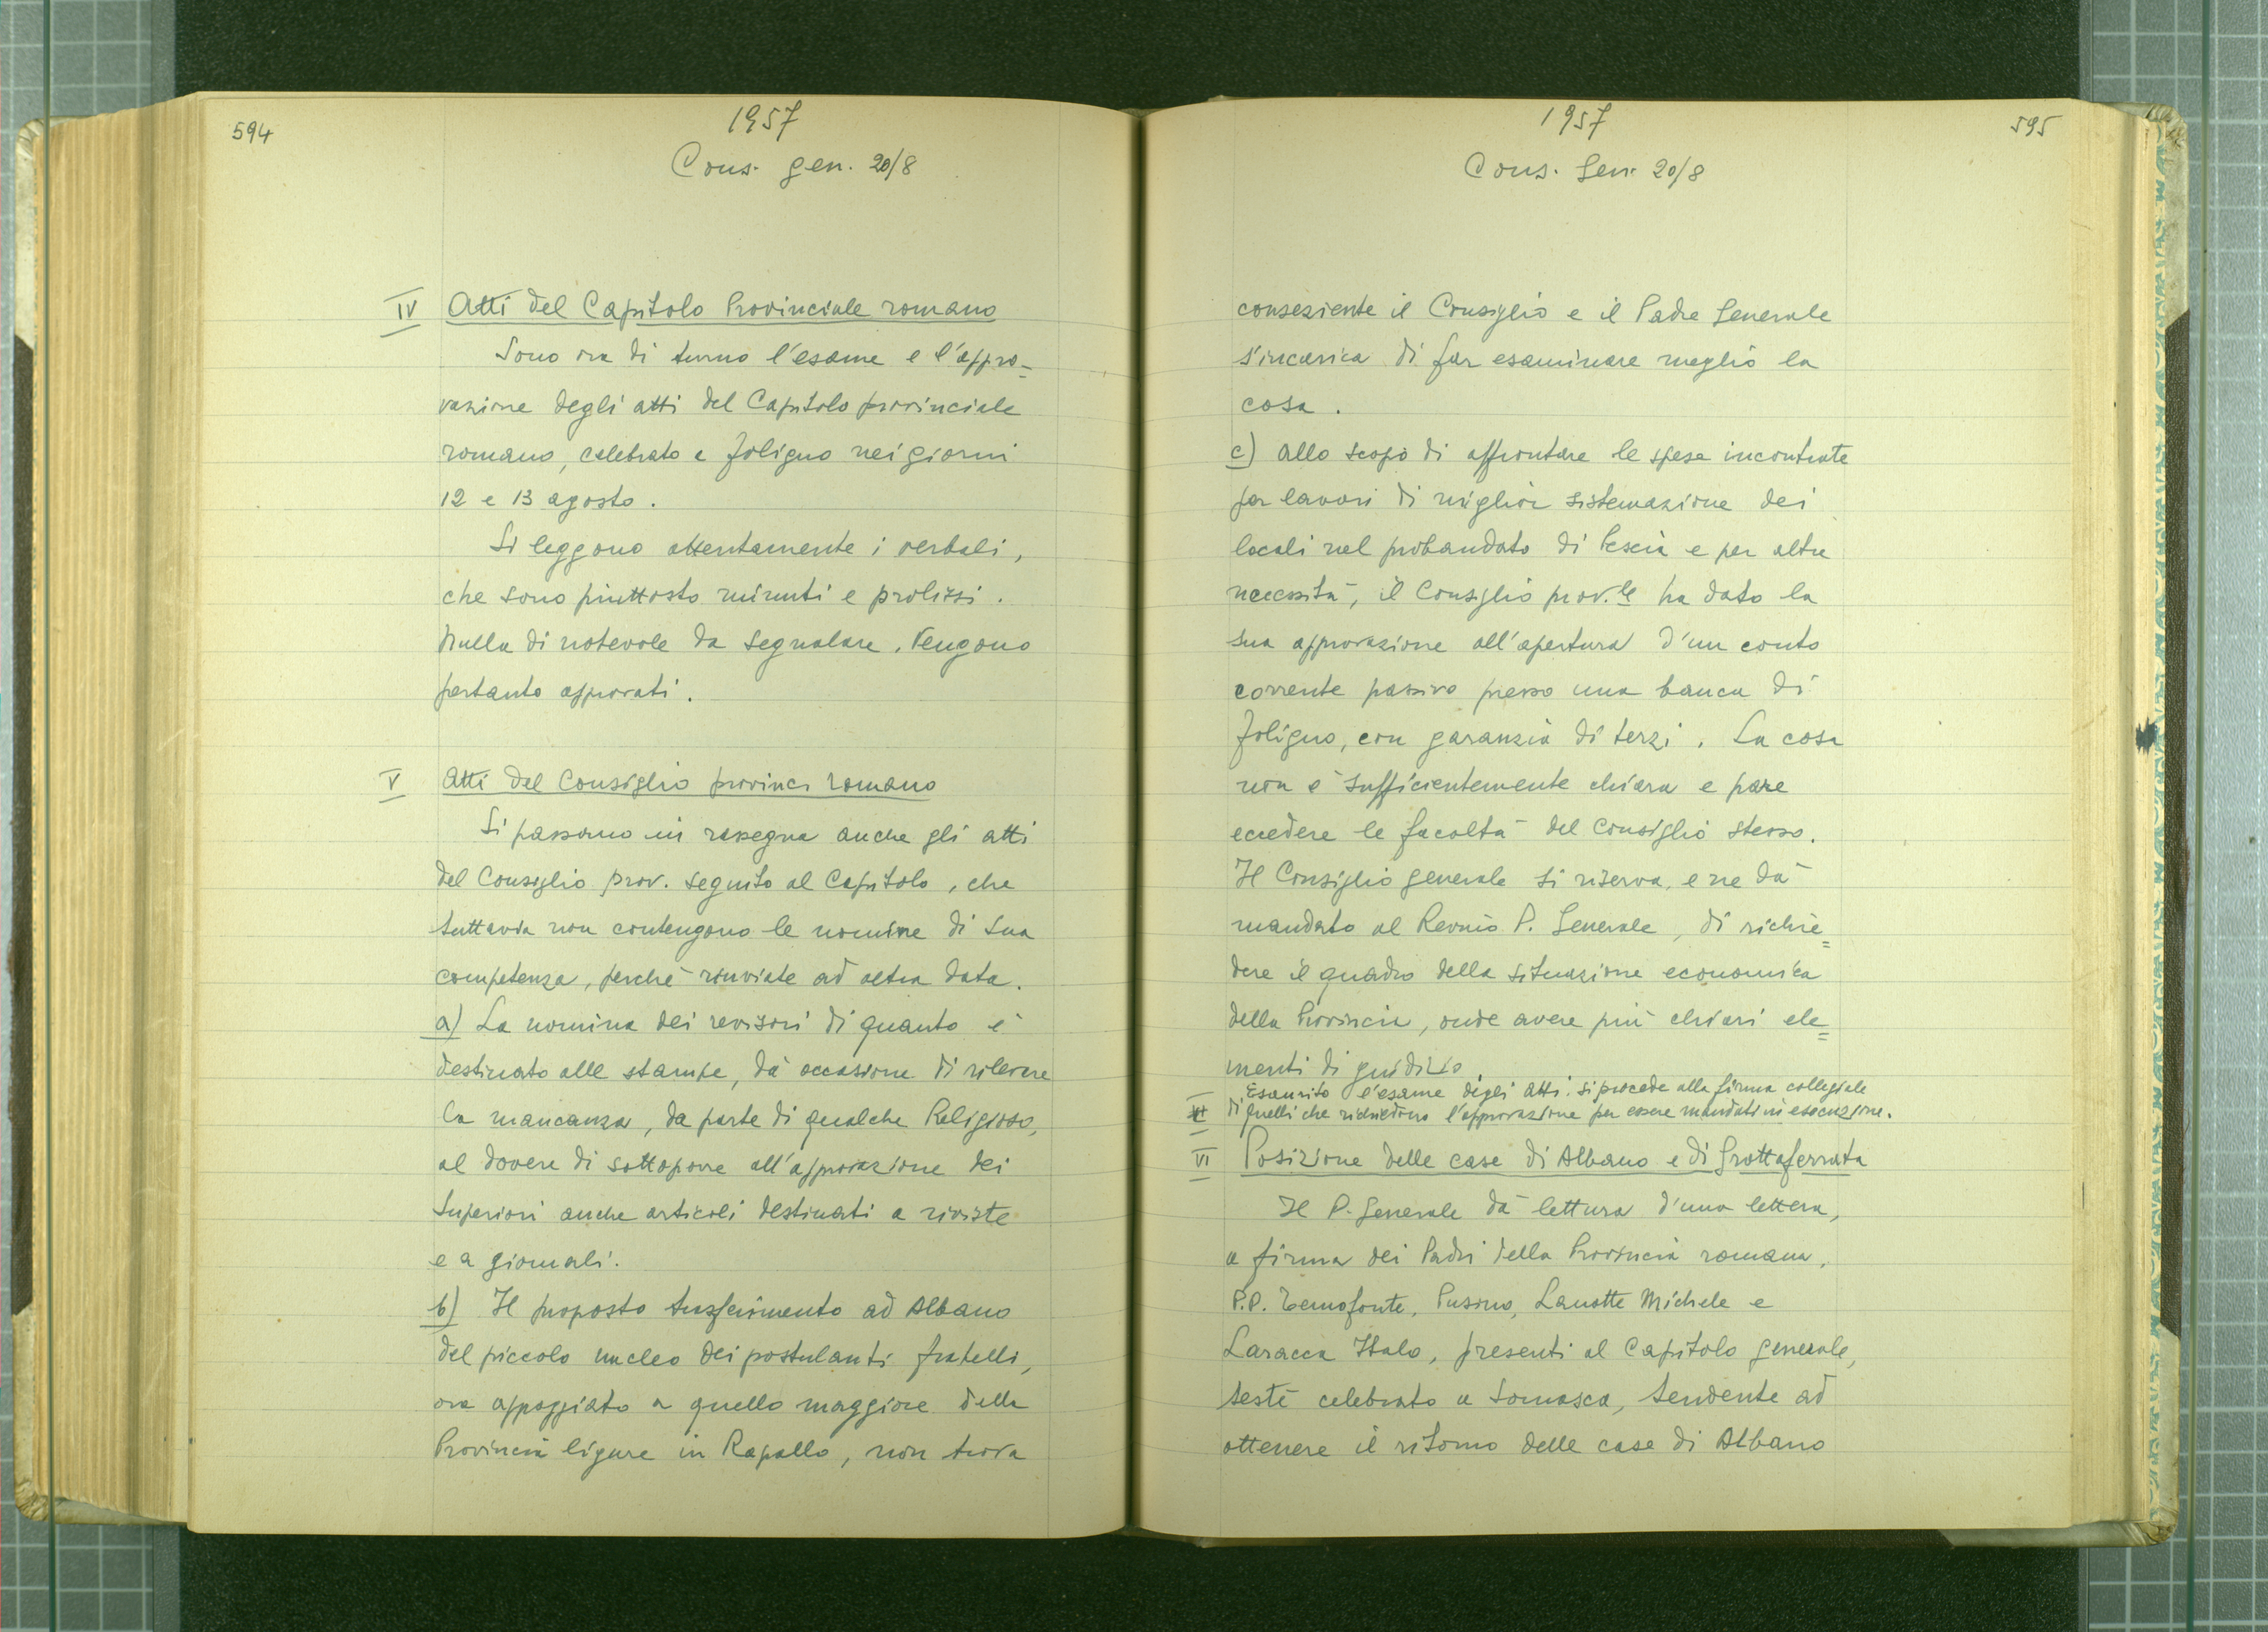 594
1957
Cons. gen. 20/8
IV Atti del Capitolo Provinciale romano
Sono ora di turno l'esame e l'appro=
vazione degli atti del Capitolo provinciale
romano, celebrato a Foligno nei giorni
12 e 13 agosto.
Si leggono attentamente i verbali,
che sono piuttosto minuti e prolissi.
Nulla di notevole da segnalare. Vengono
pertanto approvati.
V Atti del Consiglio provinc. romano
Si passano in rassegna anche gli atti
del Consiglio prov. seguito al Capitolo, che
tuttavia non contengono le nomine di sua
competenza, perchè rinviate ad altra data.
a) La nomina dei revisori di quanto è
destinato alle stampe, dà occasione di rilevare
la mancanza, da parte di qualche Religioso,
al dovere di sottoporre all'approvazione dei
Superiori anche articoli destinati a riviste
e a giornali.
b) Il proposto trasferimento ad Albano
del piccolo nucleo dei postulanti fratelli,
ora appoggiato a quello maggiore della
Provincia ligure in Rapallo, non trova
1957
595
Cons. Gen. 20/8
conseziente il Consiglio e il Padre Generale
s'incarica di far esaminare meglio la
cosa.
c) Allo scopo di affrontare le spese incontrate
per lavori di miglior sistemazione dei
locali nel probandato di Pescia e per altre
necessità, il Consiglio prov.le ha dato la
sua approvazione all'apertura d'un conto
corrente passivo presso una banca di
Foligno, con garanzia di terzi. La cosa
non è sufficientemente chiara e pare
eccedere le facoltà del Consiglio stesso.
Il Consiglio generale si riserva, e ne dà
mandato al Revmo P. Generale, di richie=
dere il quadro della situazione economica
della Provincia, onde avere più chiari ele=
menti di giudizio.
Esaurito l'esame degli atti. si procede alla firma collegiale
di quelli che richiedono l'approvazione per essere mandati in esecuzione.
VI Posizione delle case di Albano e di Grottaferrata
Il P. Generale dà lettura d'una lettera,
a firma dei Padri della Provincia romana,
P.P. Temofonte, Pusino, Lanotte Michele e
Laracca Italo, presenti al Capitolo generale,
testè celebrato a Somasca, tendente ad
ottenere il ritorno delle case di Albano